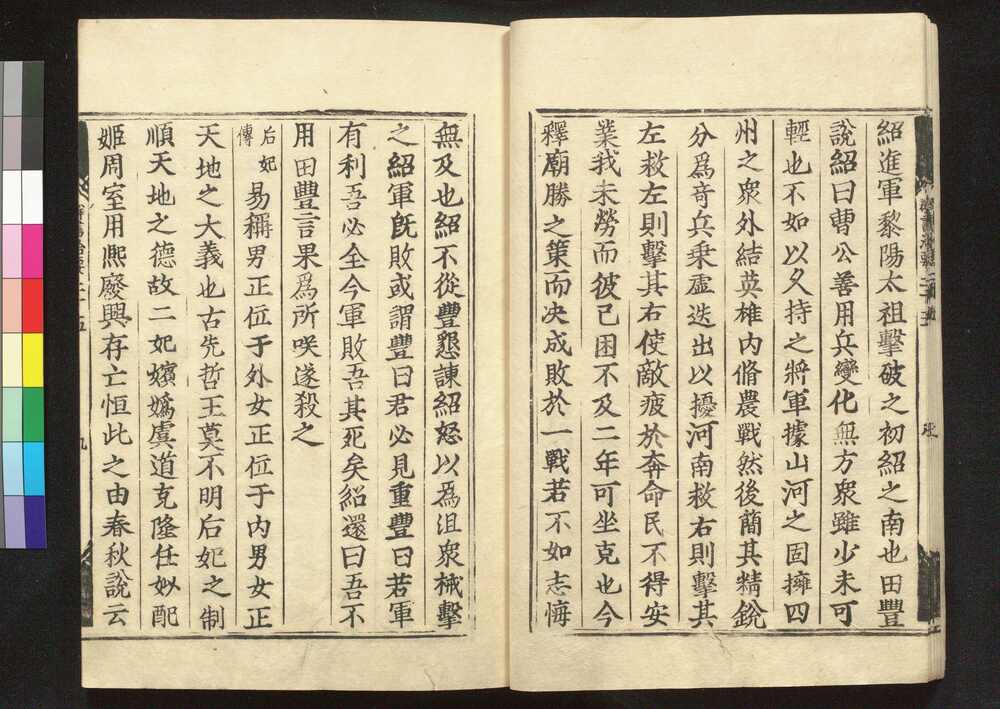 紹進軍黎陽太祖擊破之初紹之南也田豐
說紹曰曹公善用兵變化無方衆雖少未可
輕也不如以久持之將軍據山河之固擁四
州之衆外結英雄內脩農戰然後簡其精銳
分爲奇兵乗虛迭出以擾河南救右則擊其
左救左則擊其右使敵疲於奔命民不得安
業我未勞而彼已困不及二年可坐克也今
釋廟勝之策而决成敗於一戰若不如志悔
無及也紹不從豐懇諫紹怒以爲沮衆械擊
之紹軍旣敗或謂豐曰君必見重豐曰若軍
有利吾必全今軍敗吾其死矣紹還曰吾不
用田豐言果爲所咲遂殺之
后妃傳易稱男正位于外女正位于內男女正
天地之大義也古先哲王莫不明后妃之制
順天地之德故二妃嬪嬀虞道克隆任姒配
姬周室用熈廢興存亡恒此之由春秋說云
九